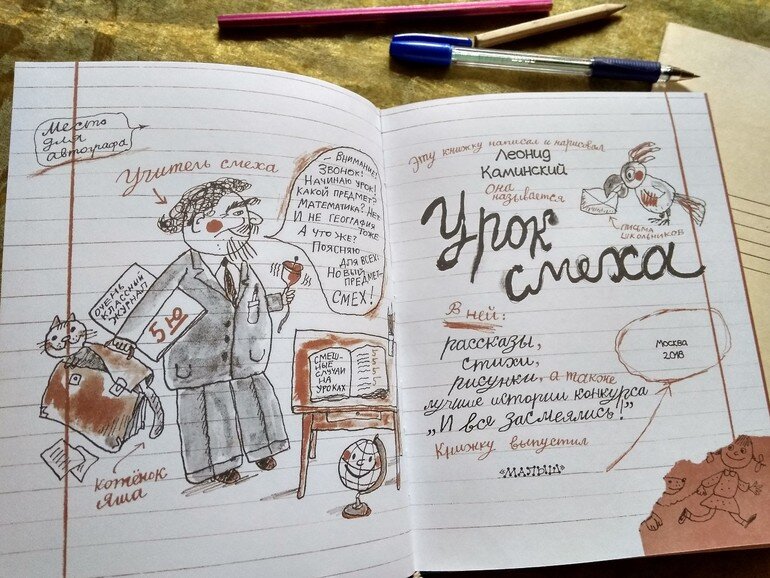 Место
для
автографа
Учитель смеха
— Внимание!
Звонок!
Начинаю урок!
Какой предмет?
Математика? Нет.
И не география
тоже
А что же?
Поясняю
для всех:
Новый
предмет—
СМЕХ!
ОЧЕНЬ
КЛАССНЫЙ
ЖУРНАЛ
5 Ю
СМЕШ-
НЫЕ
СЛУЧАИ
НА
УРОКАХ
котёнок
Яша
Эту книжку написал и нарисовал
Леонид
Каминский
Она
называется
Урок
смеха
письма
школьников
В ней:
рассказы,
стихи,
рисунки, а также
лучшие истории конкурса
„И все засмеялись!"
Книжку выпустил
«МАЛЫШ»
Москва
2018